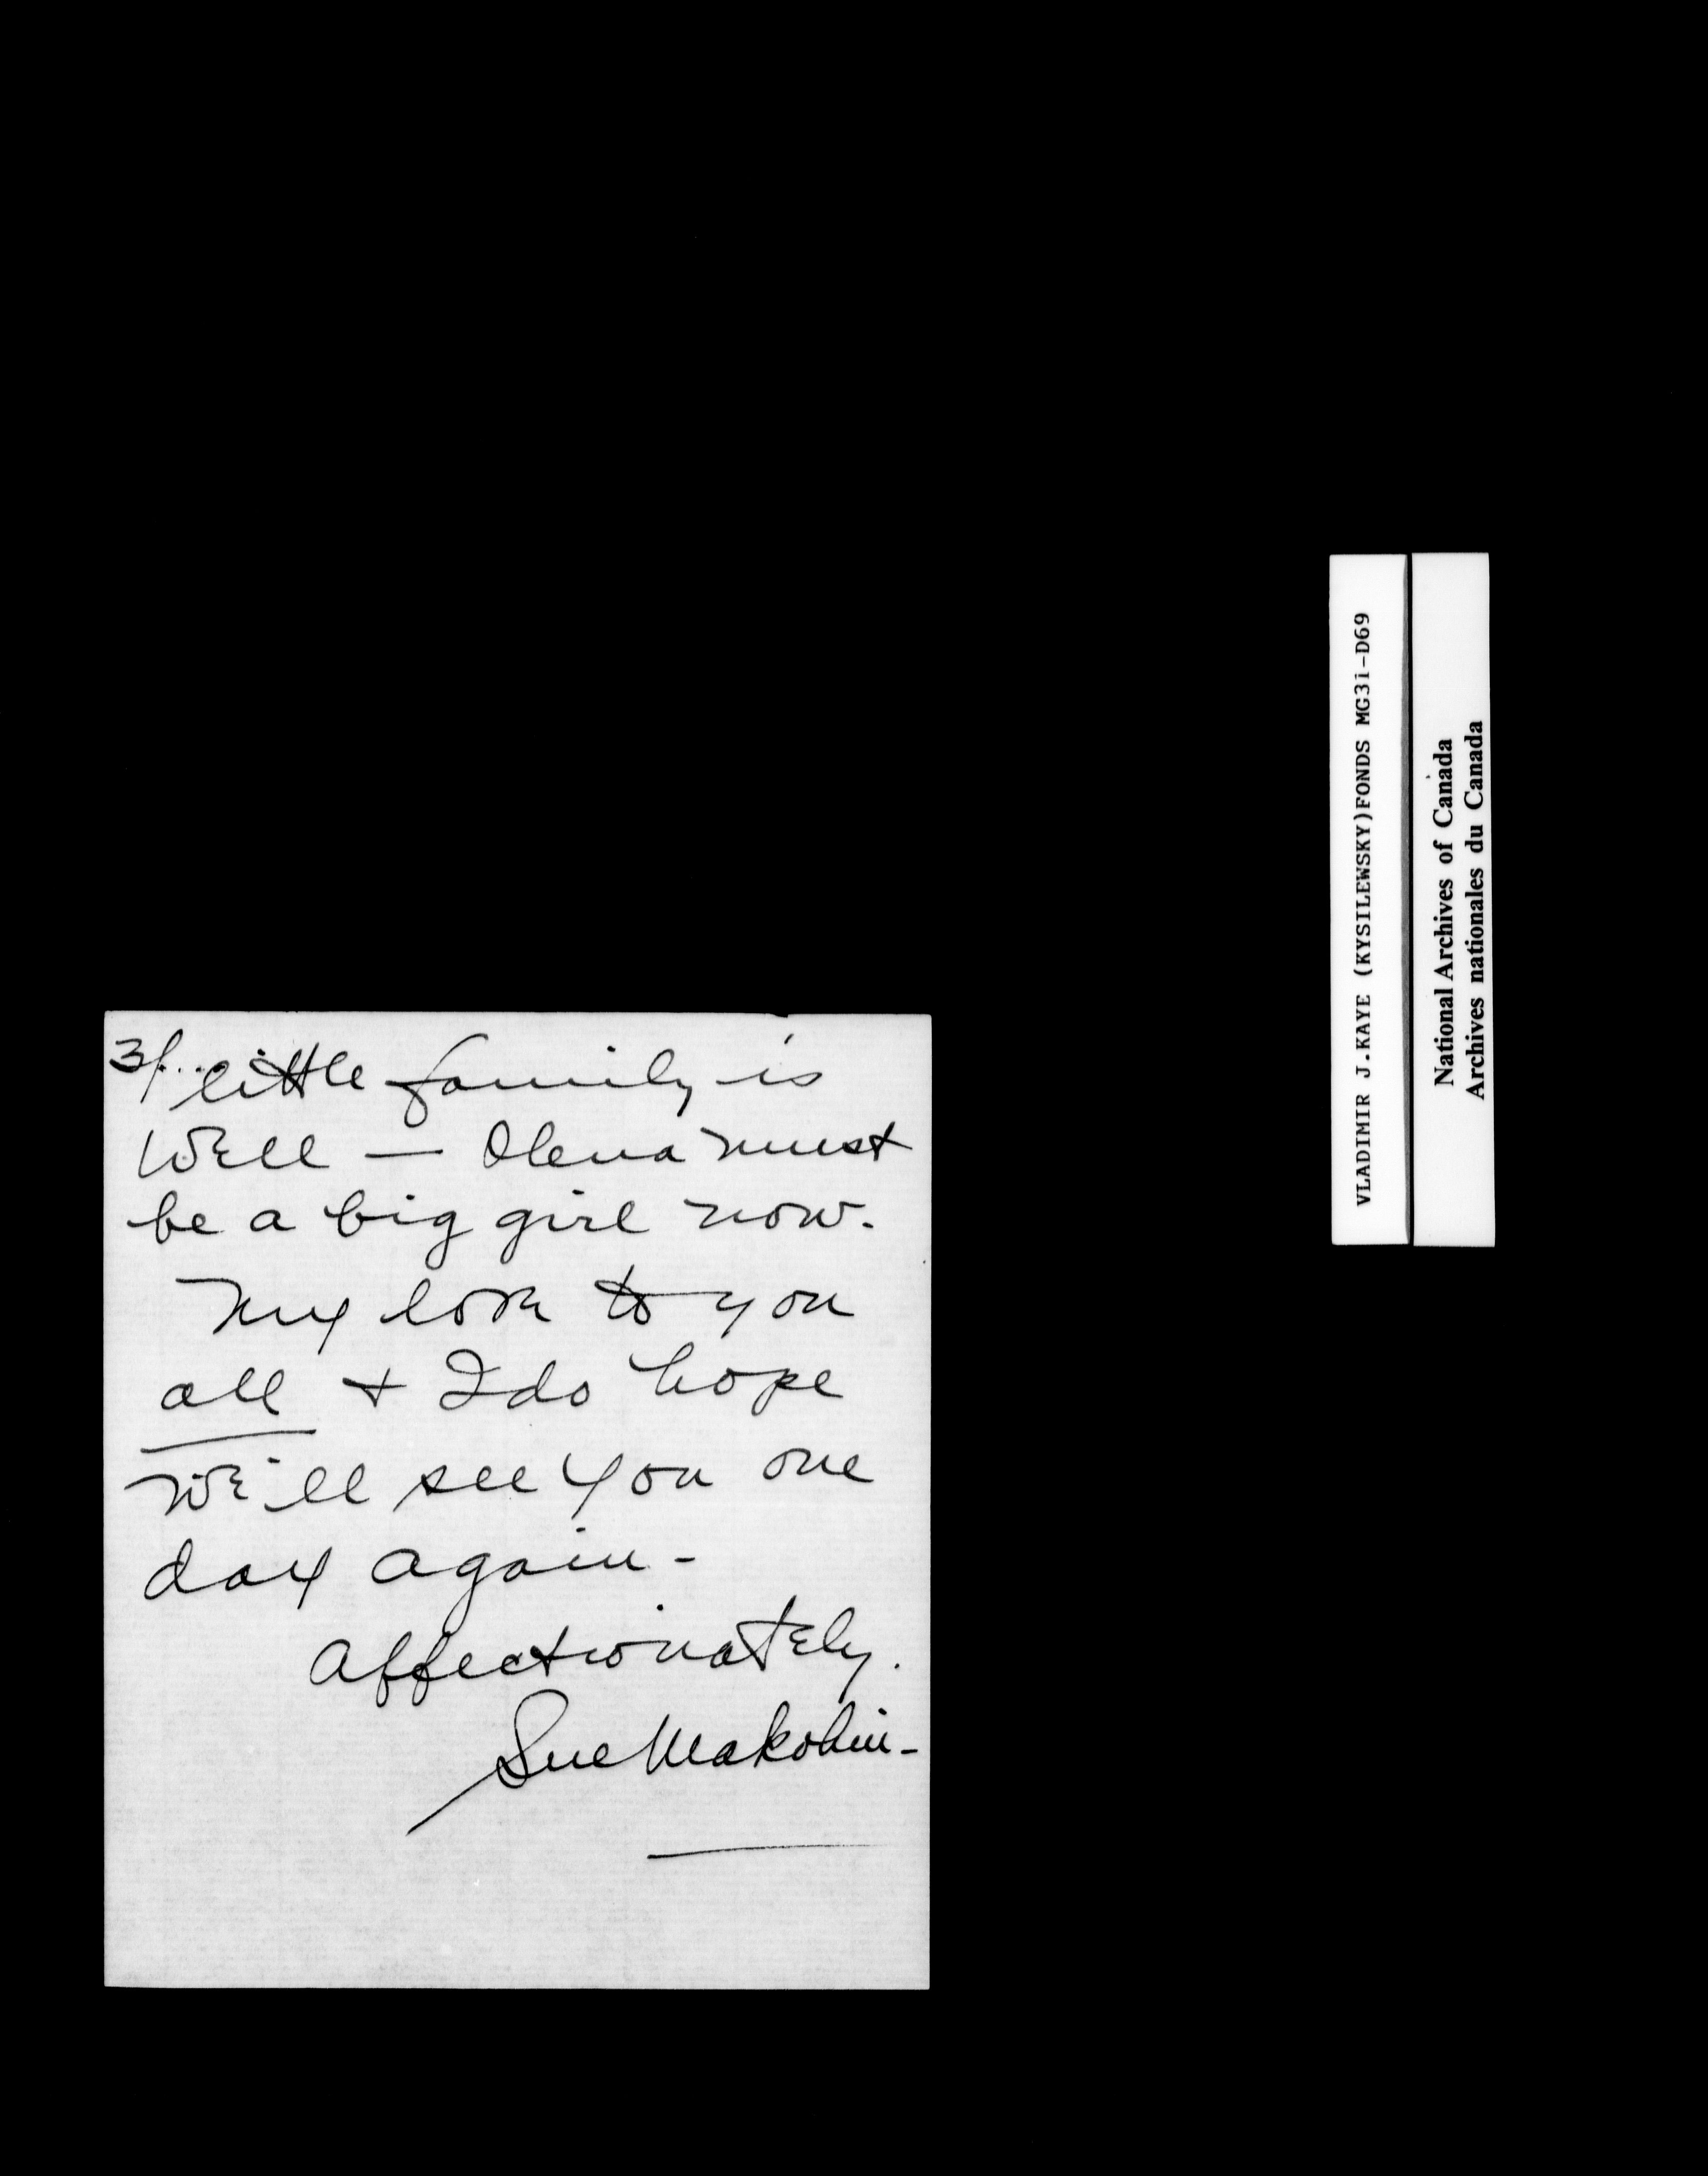 3/... little family is
well — Olena must
be a big girl now.
My love to you
all + I do hope
we'll see you one
day again -
Affectionately.
Sue Makohin -
VLADIMIR J.KAYE (KYSILEWSKY)FONDS MG31-D69
National Archives of Canada
Archives nationales du Canada